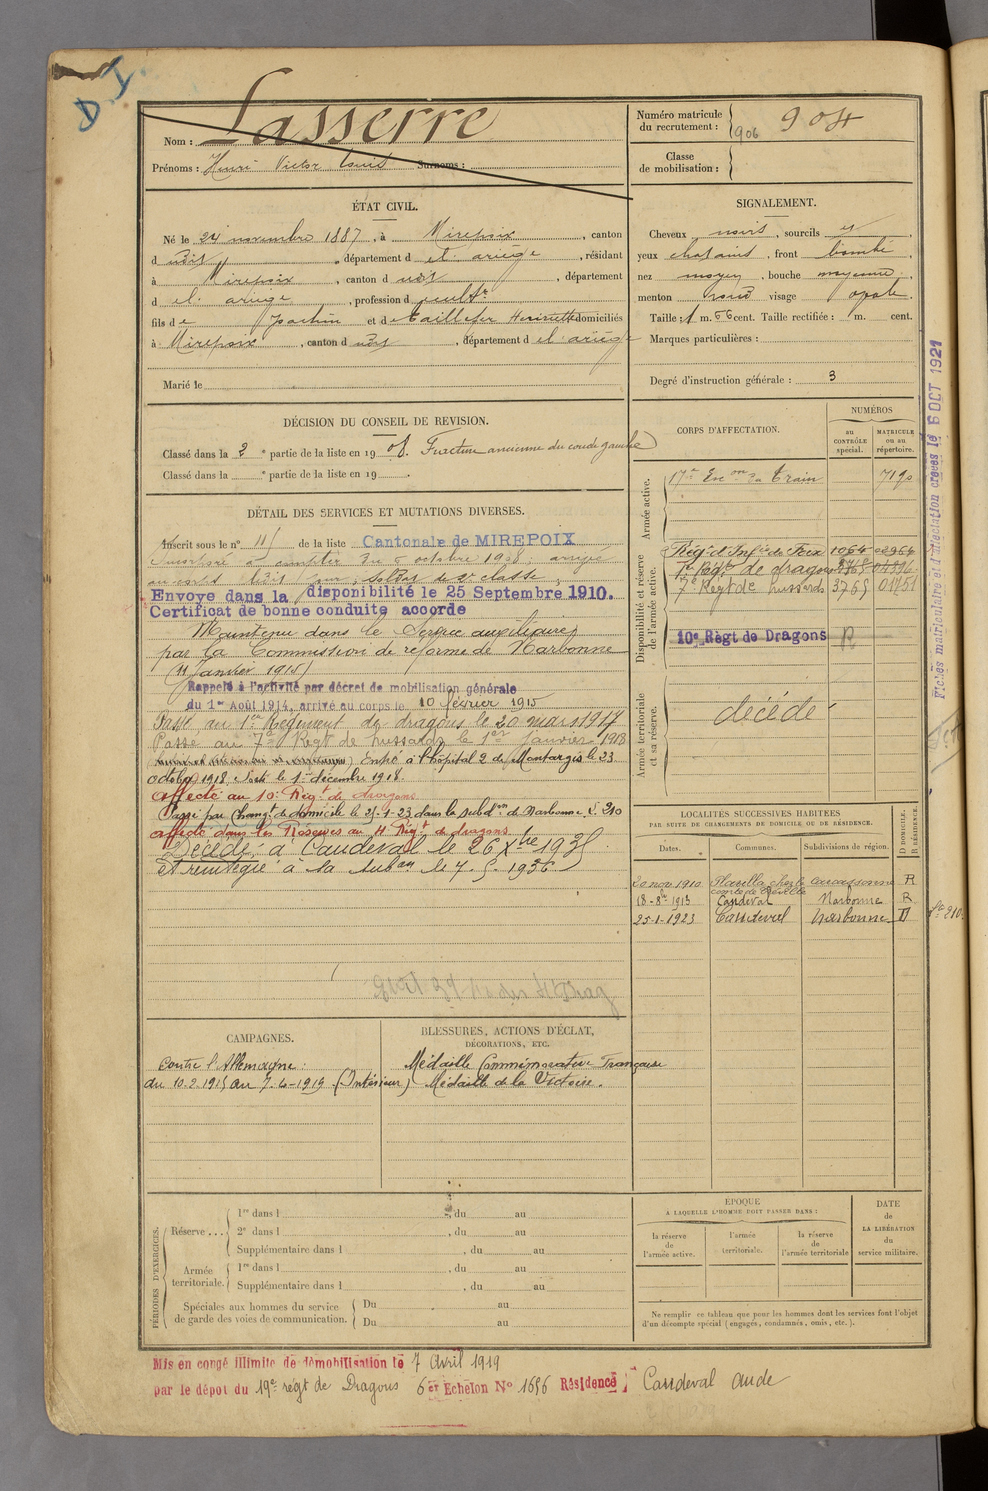 D I
Nom : Lasserre
Prénoms : Henri Victor Louis Surnoms :
Numéro matricule du recrutement : 906 904
Classe de mobilisation :
ÉTAT CIVIL.
Né le 24 novembre 1887, à Mirepoix, canton
d udit, département d el. ariège, résidant
à Mirepoix, canton d udit, département
d el. ariège, profession d
fils de Joachim et de Taillefer Henriette domiciliés
à Mirepoix, canton d udit, département d el. ariège
Marié le
SIGNALEMENT.
Cheveux noirs, sourcils id
yeux chatains, front bombé
nez moyen, bouche moyenne,
menton rond visage ovale.
Taille : 1 m. 56 cent. Taille rectifiée : m. cent.
Marques particulières :
Degré d'instruction générale : 3
DÉCISION DU CONSEIL DE REVISION.
Classé dans la 2e partie de la liste en 1908. Fracture ancienne du coude gauche
Classé dans la e partie de la liste en 19 .
DÉTAIL DES SERVICES ET MUTATIONS DIVERSES.
Inscrit sous le n° 115 de la liste Cantonale de MIREPOIX
Incorporé à compter du octobre 1908, arrivé
au corps ledit jour, soldat de 2e classe,
Envoyé dans la disponibilité le 25 Septembre 1910.
Certificat de bonne conduite accordé
Maintenu dans le Service auxiliaire
par la Commission de réforme de Narbonne
(11 Janvier 1915)
Rappelé à l'activité par décret de mobilisation générale
du 1er Août 1914, arrivé au corps le 10 février 1915
Passé au 1er Régiment de dragons le 20 mars 1917
Passé au 7e Regt de hussards le 1er janvier 1918
Entré à l'hôpital 2 de Montargis le 23
octobre 1918, Sorti le 1er décembre 1918.
affecté au 10e Régt de dragons
Passé par changt de domicile le 25-1-23 dans la subdon de Narbonne 210
affecté dans les Réserves au 4e Régt de dragons
Décédé à Caudeval le 26 Xbre 1935
Et réintégré à la subon le 7.5.1936
CORPS D'AFFECTATION.
NUMÉROS
au CONTRÔLE spécial.
MATRICULE ou au répertoire.
Armée active.
17e Escon du Train 7190
Disponibilité et réserve de l'armée active.
Régt d'Infie de Foix 1064 02964
1er Régt de dragons 04396
7e Regt de hussards 3765 01751
10e Règt de Dragons R
Armée territoriale et sa réserve.
décédé
LOCALITÉS SUCCESSIVES HABITÉES
PAR SUITE DE CHANGEMENTS DE DOMICILE OU DE RÉSIDENCE.
Dates. Communes. Subdivisions de région. D DOMICILE. R RÉSIDENCE.
20 nov 1910 Plavilla chez le Carcassonne R
18-8bre 1913 Caudeval Narbonne R
25-1-1923 Caudeval Narbonne D
Fiches matriculaire et d'affectation créées le 6 OCT 1921
CAMPAGNES.
Contre l'Allemagne :
du 10.2.1915 au 7-4-1919 (Intérieur)
BLESSURES, ACTIONS D'ÉCLAT,
DÉCORATIONS, ETC.
Médaille Commémorative Française
Médaille de la Victoire.
PÉRIODES D'EXERCICES.
Réserve ...
1re dans l , du au
2e dans l , du au
Supplémentaire dans l , du au
Armée territoriale.
1re dans l , du au
Supplémentaire dans l , du au
Spéciales aux hommes du service de garde des voies de communication.
Du au
Du au
ÉPOQUE
À LAQUELLE L'HOMME DOIT PASSER DANS :
la réserve de l'armée active.
l'armée territoriale.
la réserve de l'armée territoriale
DATE de LA LIBÉRATION du service militaire.
Ne remplir ce tableau que pour les hommes dont les services font l'objet
d'un décompte spécial (engagés, condamnés, omis, etc.).
Mis en congé illimité de démobilisation le 7 Avril 1919
par le dépôt du 19e régt de Dragons 6er Echelon N° 1696 Résidence Caudeval Aude